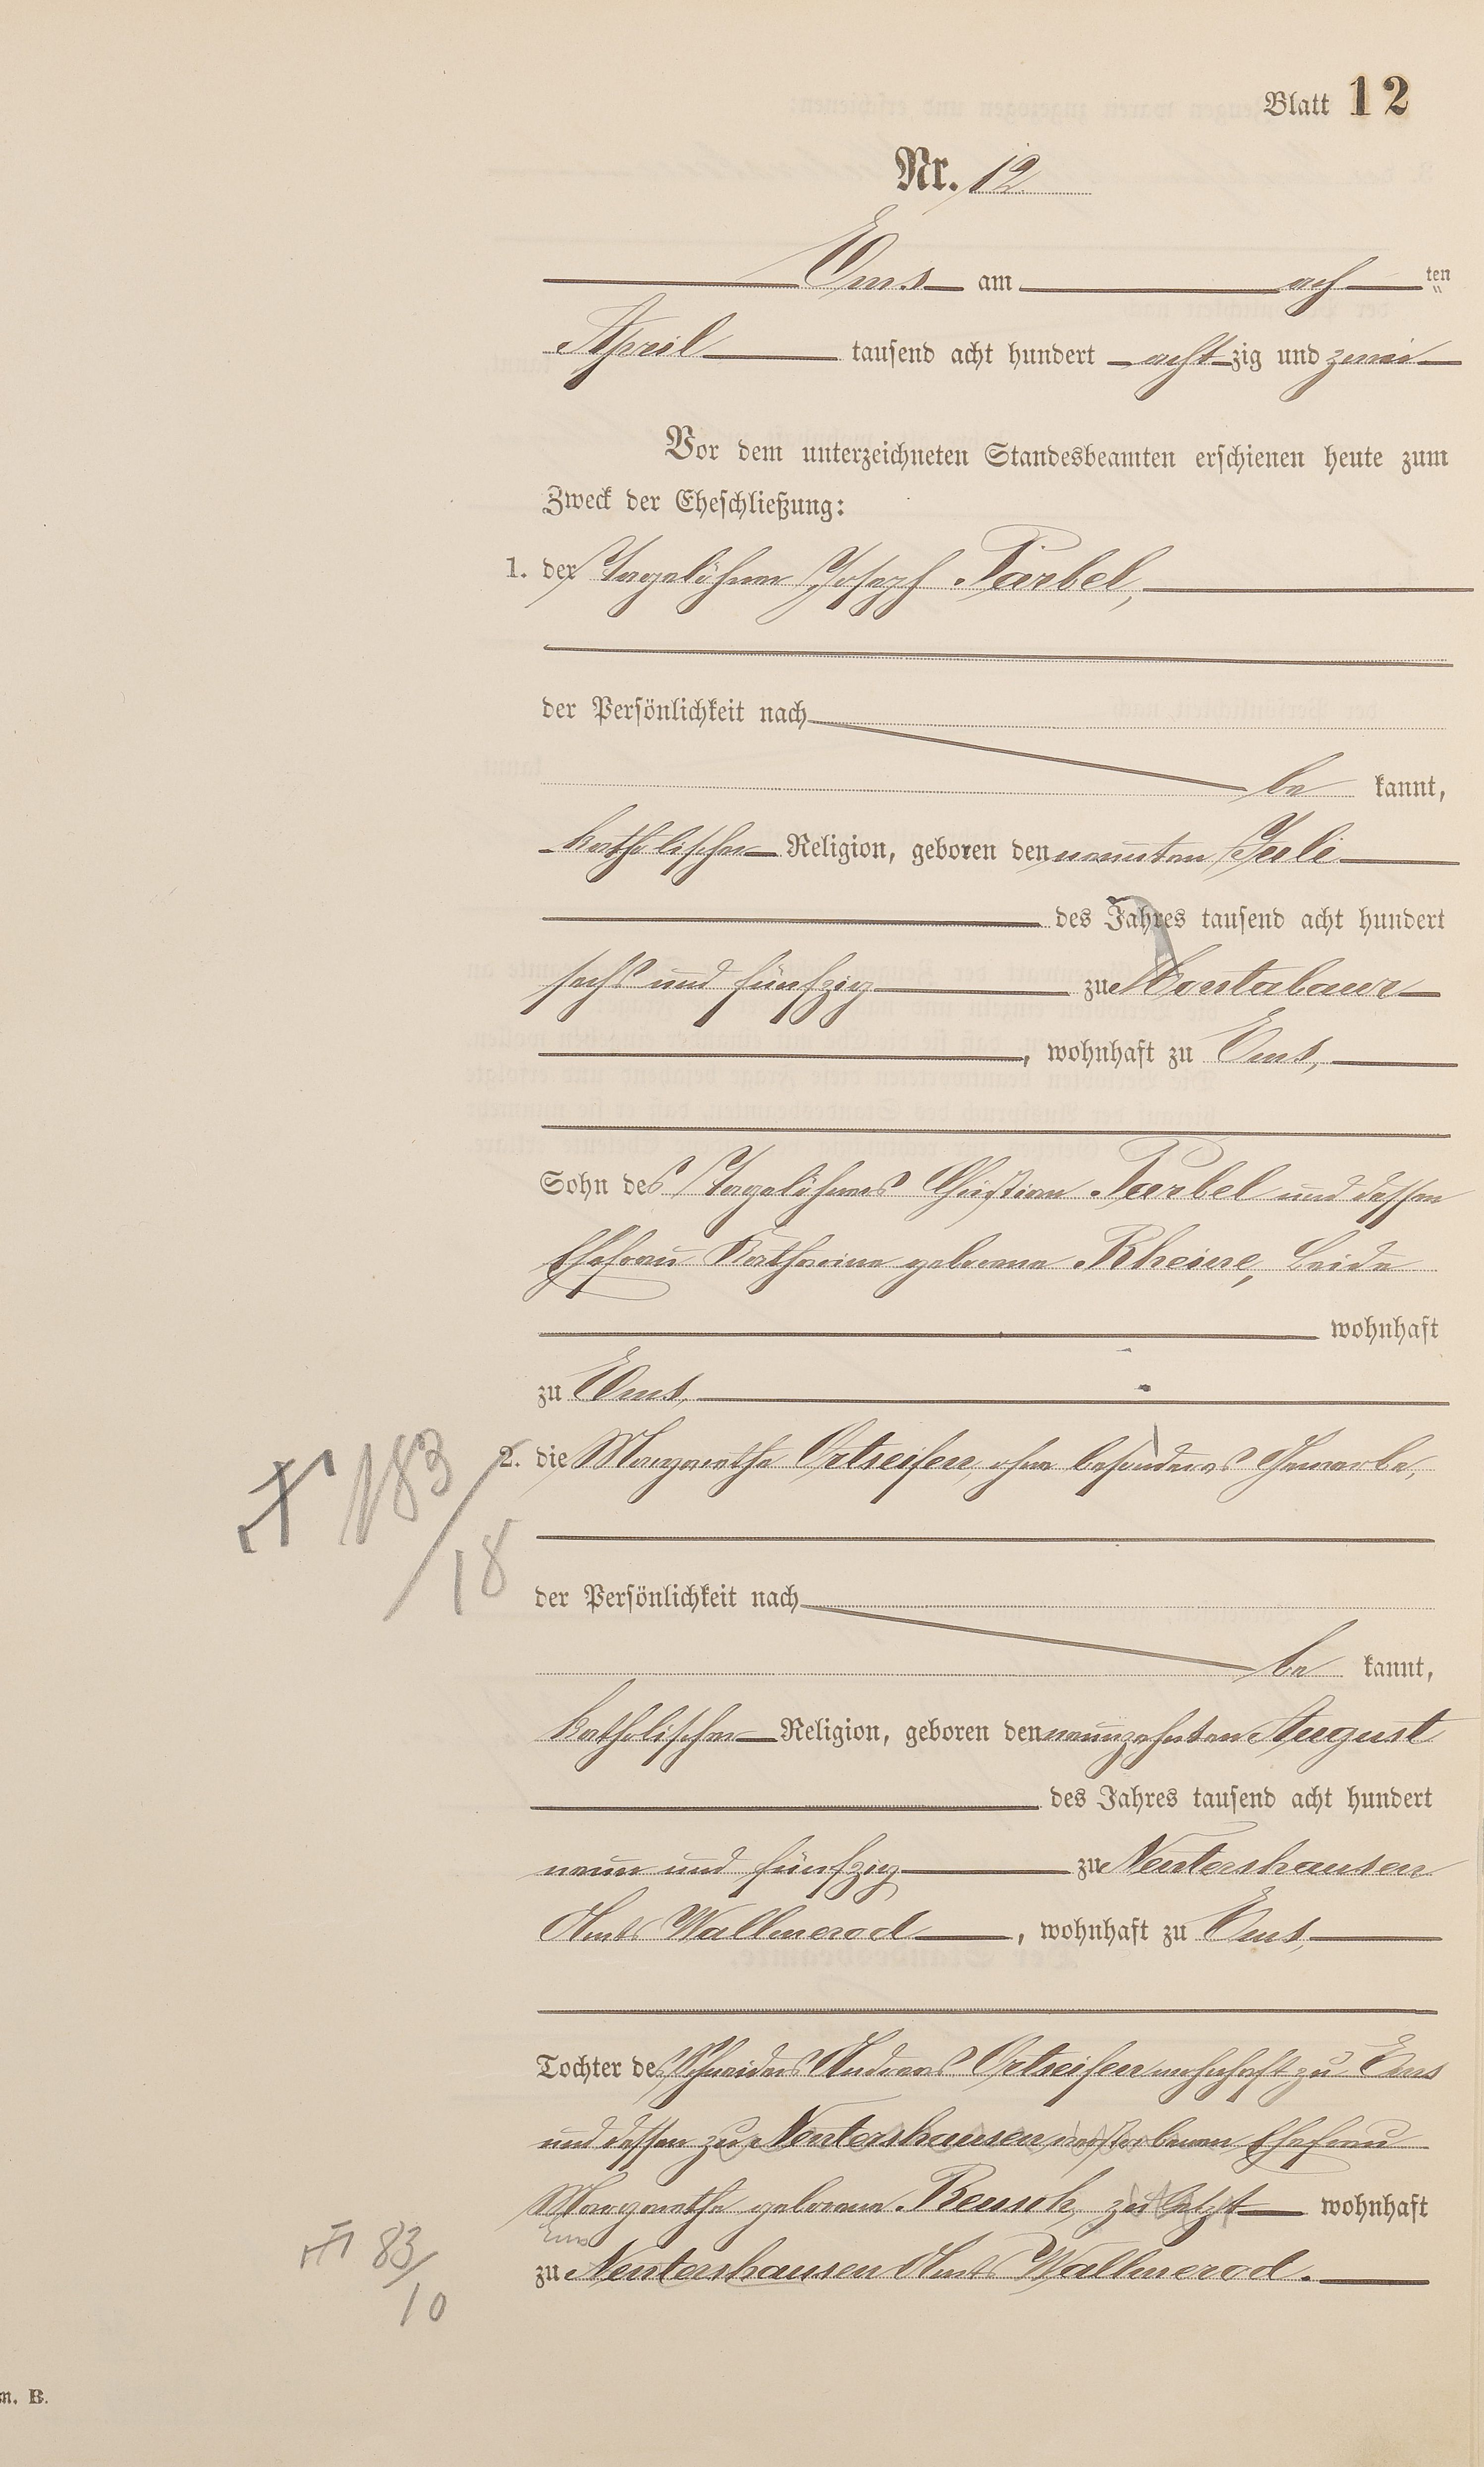 Blatt 12
Nr. 12
Ems am ach ten
April tausend acht hundert achtzig und zwei
Vor dem unterzeichneten Standesbeamten erschienen heute zum
Zweck der Eheschließung:
1. der Tagelöhner Joseph Färbel,
der Persönlichkeit nach
be kannt,
katholischer Religion, geboren den neunten Juli
des Jahres tausend acht hundert
sechs und fünfzig zu Montabaur
, wohnhaft zu Ems,
Sohn des Tagelöhners Christian Färbel und dessen
Ehefrau Katharina geborene Rheine, beide
wohnhaft
zu Ems,
2. die Margarethe Ortseifen ohne besonderes Gewerbe,
† 183/18
der Persönlichkeit nach
be kannt,
katholischer Religion, geboren den neunzehnten August
des Jahres tausend acht hundert
neun und fünfzig zu Nentershausen
Amts Wallmerod, wohnhaft zu Ems,
Tochter des Schneiders Andreas Ortseifen wohnhaft zu Ems
und dessen zu Nentershausen verstorbenen Ehefrau
Margarethe geborene Reusch, zu letzt wohnhaft
Ems
zu Nentershausen Amts Wallmerod.
83/10
m. B.